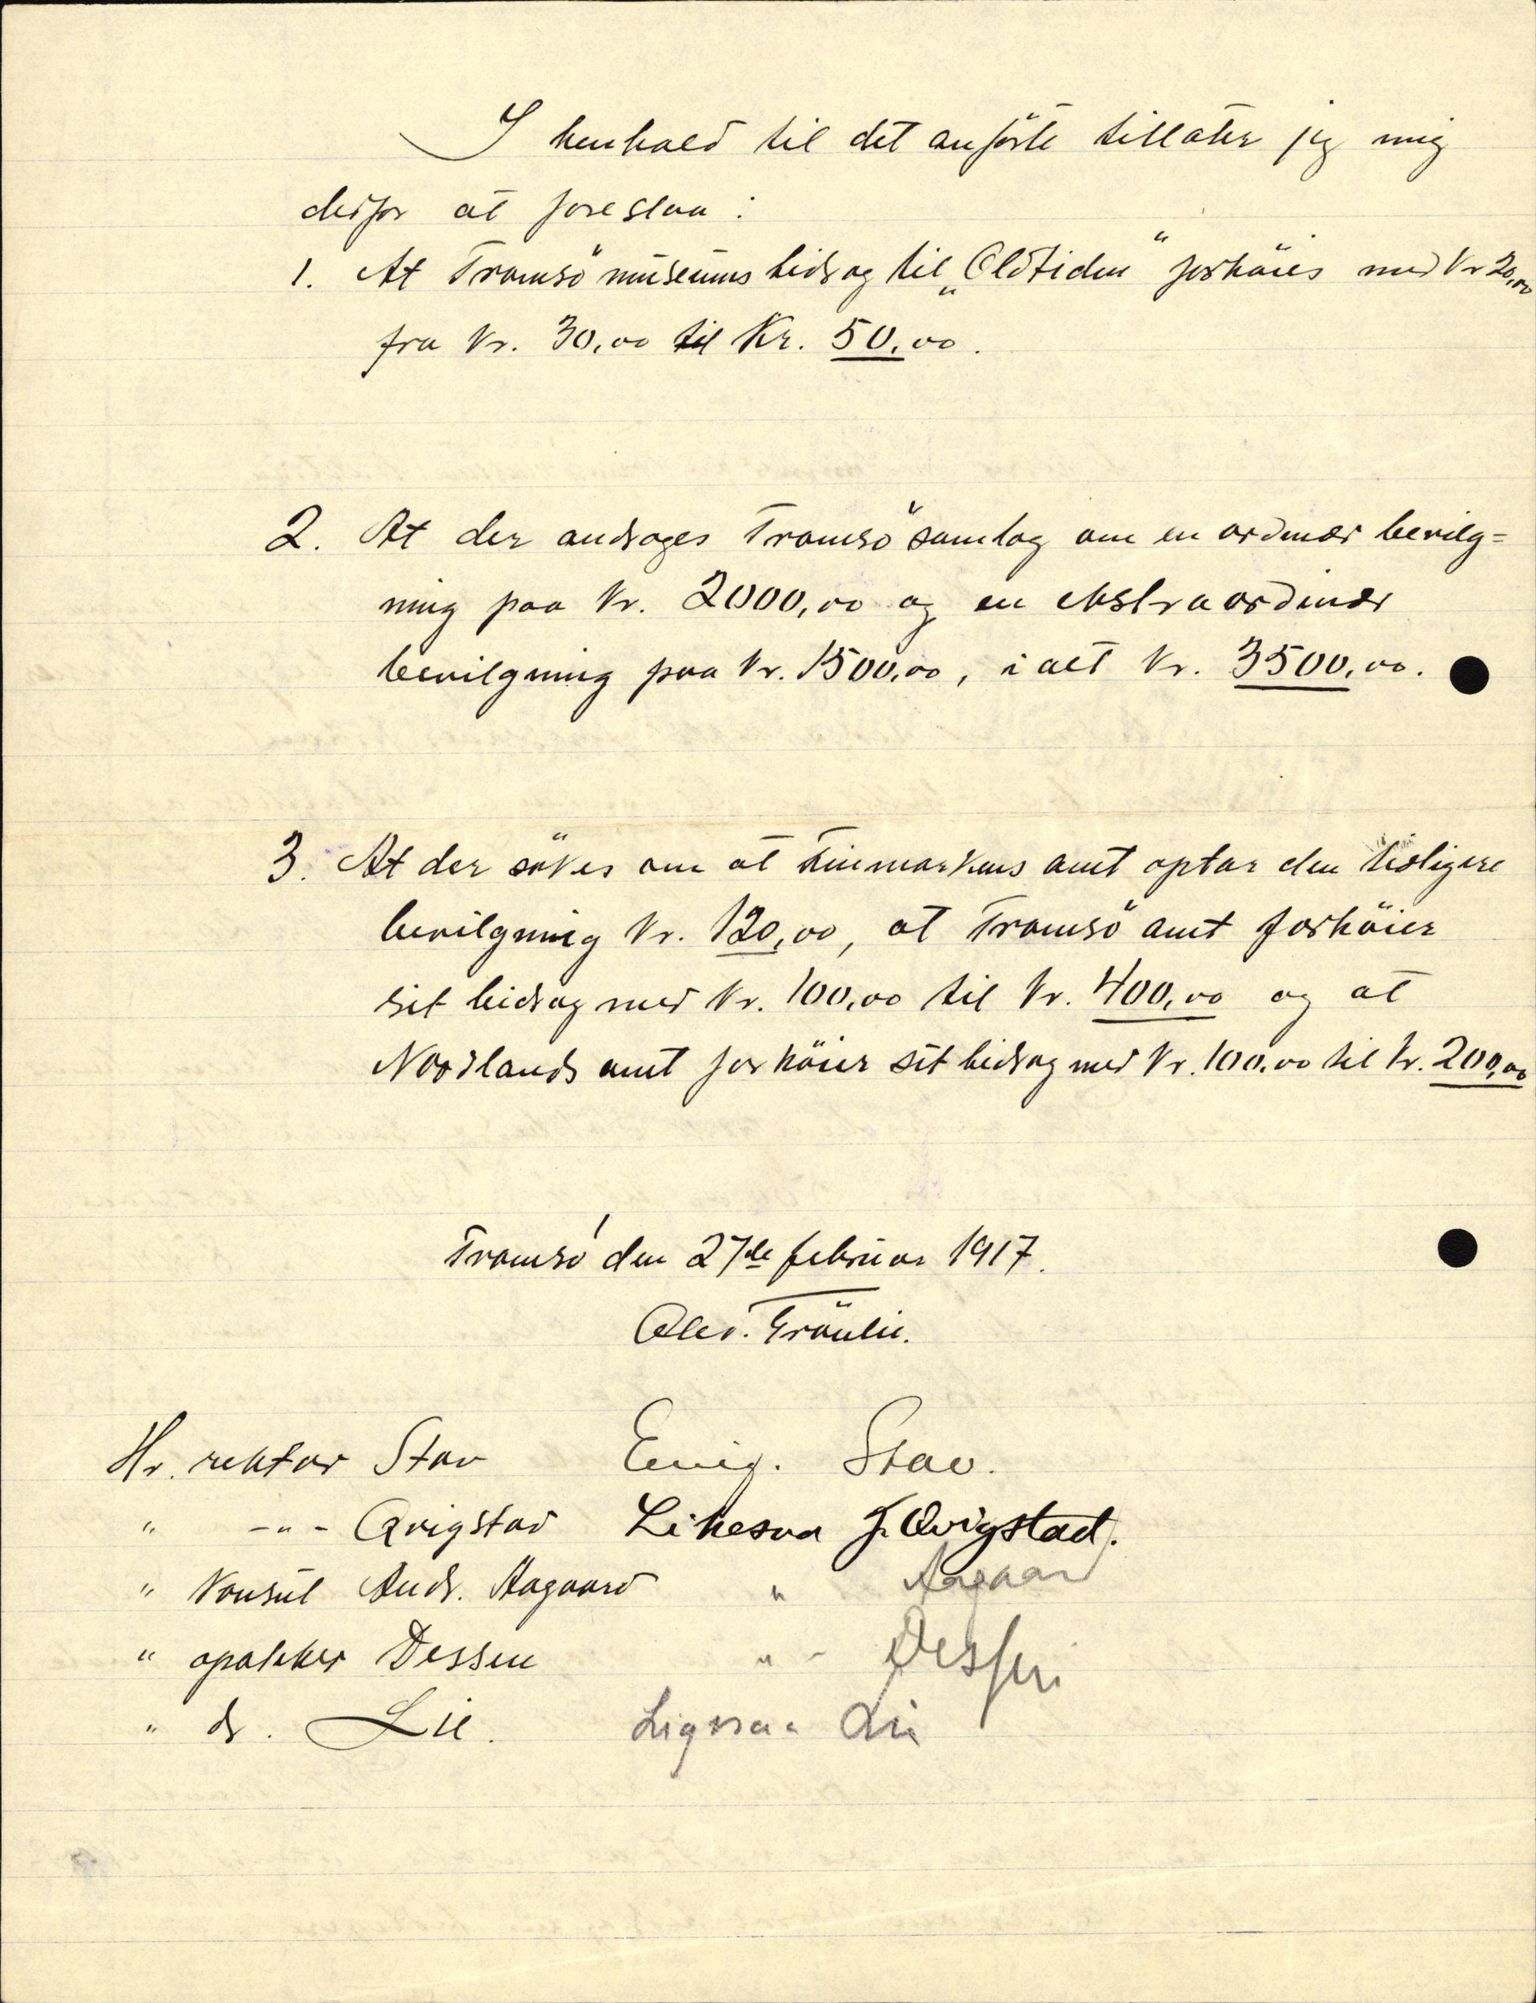 I henhold til det anförte tillater jeg mig
derfor at foreslaa :
1. At Tromsö museums bidrag til „Oldtiden" forhöies med Kr 20,00
fra Kr. 30,00 til Kr. 50,00.
2. At der andrages Tromsö samlag om en ordinær bevilg=
ning paa Kr. 2000,00 og en ekstraordinær
bevilgning paa Kr. 1500,00, i alt Kr. 3500,00.
3. At der sökes om at Finmarkens amt optar den tidligere
bevilgning Kr. 120,00, at Tromsö amt forhöier
sit bidrag med Kr. 100,00 til Kr. 400,00 og at
Nordlands amt forhöier sit bidrag med Kr. 100,00 til Kr. 200,00
Tromsö den 27de februar 1917.
Olev.
Hr. rektor Stav Enig. Stav.
" -"- Qvigstad Likesaa J. Qvigstad.
" Konsul Andr. Aagaard " Aagaard
" apoteker Dessen " - Dessen
" dr. Lie. Ligesaa Lie